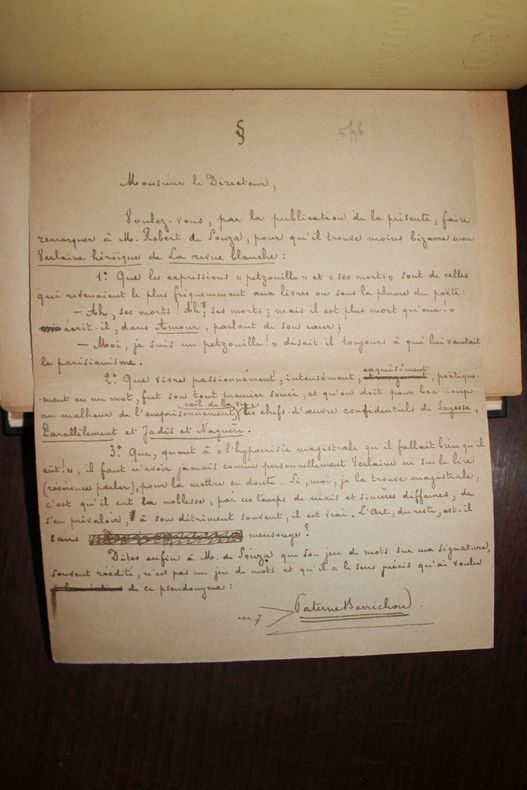 §
Monsieur le Directeur,
Voulez-vous, par la publication de la présente, faire
remarquer à M. Robert de Souza, pour qu'il trouve moins bizarre mon
Verlaine héroïque de La revue blanche :
1° Que les expressions « petzouille » et « ses morts » sont de celles
qui revenaient le plus fréquemment aux lèvres ou sous la plume du poète :
— Ah, ses morts ! Ah, ses morts ; mais il est plus mort qu'eux ! »
écrit-il, dans Amour, parlant de son cœur ;
— Moi, je suis un petzouille ! » disait-il toujours à qui lui vantait
le parisianisme.
2° Que vivre passionnément, intensément, exquisément
poétique-
ment en un mot, fut son tout premier souci, et qu'on doit pour beaucoup
au malheur de l'emprisonnement, les chefs-d'œuvre confidentiels de Sagesse,
Parallèlement et Jadis et Naguère.
3° Que, quant à « l'hypocrisie magistrale qu'il fallait bien qu'il
eût », il faut n'avoir jamais connu personnellement Verlaine ni su le lire
(révérence parler), pour la mettre en doute. Si, moi, je la trouve magistrale,
c'est qu'il eut la noblesse, par ces temps de niais et sincères diffames, de
s'en prévaloir, à son détriment souvent, il est vrai. L'Art, du reste, est-il
sans mensonge ?
Dites enfin à M. de Souza que son jeu de mots sur ma signature,
souvent réédité, n'est pas un jeu de mots et qu'il a le sens précis qu'ai voulu
de ce pseudonyme :
Paterne Berrichon.